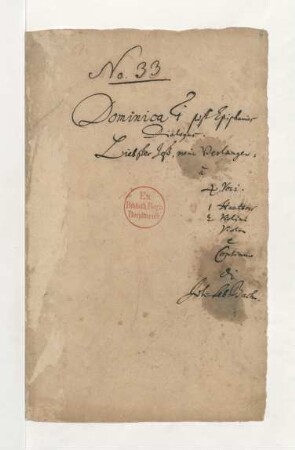 No. 33
Dominica 1 post Epiphanias
Dialogus.
Liebster Jesu, mein Verlangen.
à
4 Voci.
1 Hautbo
2 Violini
Viola
e
Continuo
di
Joh. Seb. Bach.
Ex
Biblioth. Regia
Berolinensi.